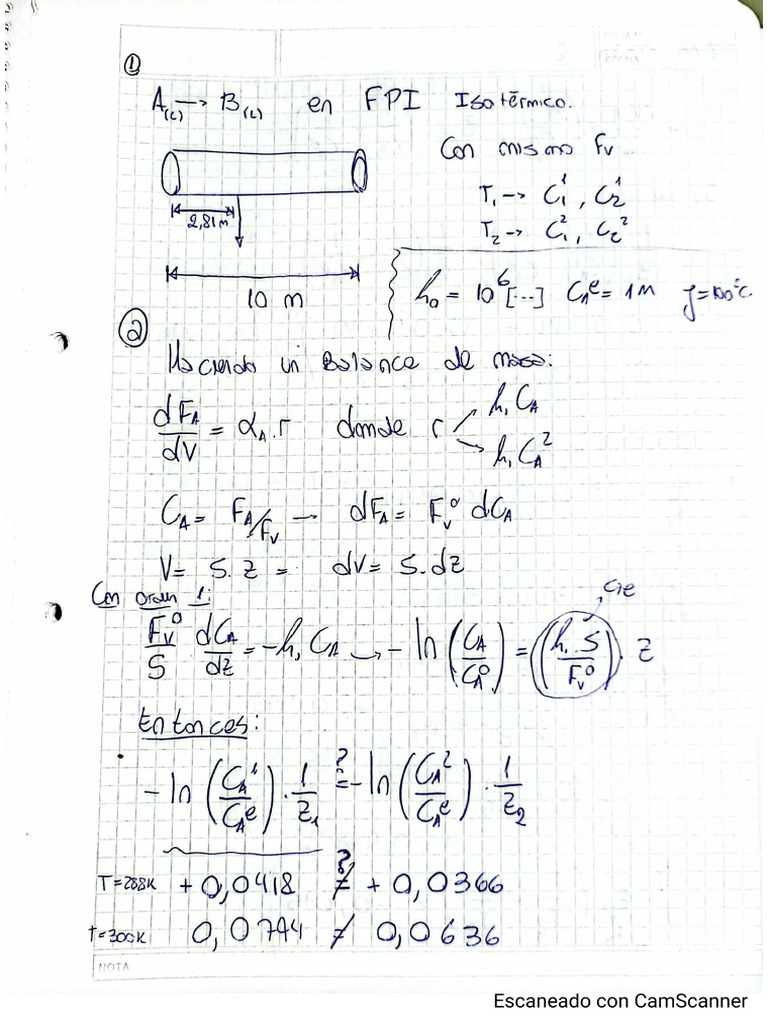 ①
A(L) → B(L) en FPI Isotérmico.
Con mismo Fv
T₁ → C₁¹, C₂¹
T₂ → C₁², C₂²
2,81m
10 m
k₀ = 10⁶ [...] C_Aᵉ = 1M
②
Haciendo un Balance de masa:
dF_A/dV = α_A . r donde r
k, C_A
k, C_A²
C_A = F_A/Fv → dF_A = Fv⁰ dC_A
V = S. Z = dV = S. dz
Con orden 1:
Fv⁰/S dC_A/dz = -k, C_A → - ln (C_A/C_A⁰) = (k. S/Fv⁰) . Z
cte
Entonces:
- ln (C_A¹/C_Aᵉ) . 1/Z₁ ?= - ln (C_A²/C_Aᵉ) . 1/Z₂
T=288K + 0,0418 ?≠ + 0,0366
t=300K 0,0744 ≠ 0,0636
NOTA
Escaneado con CamScanner